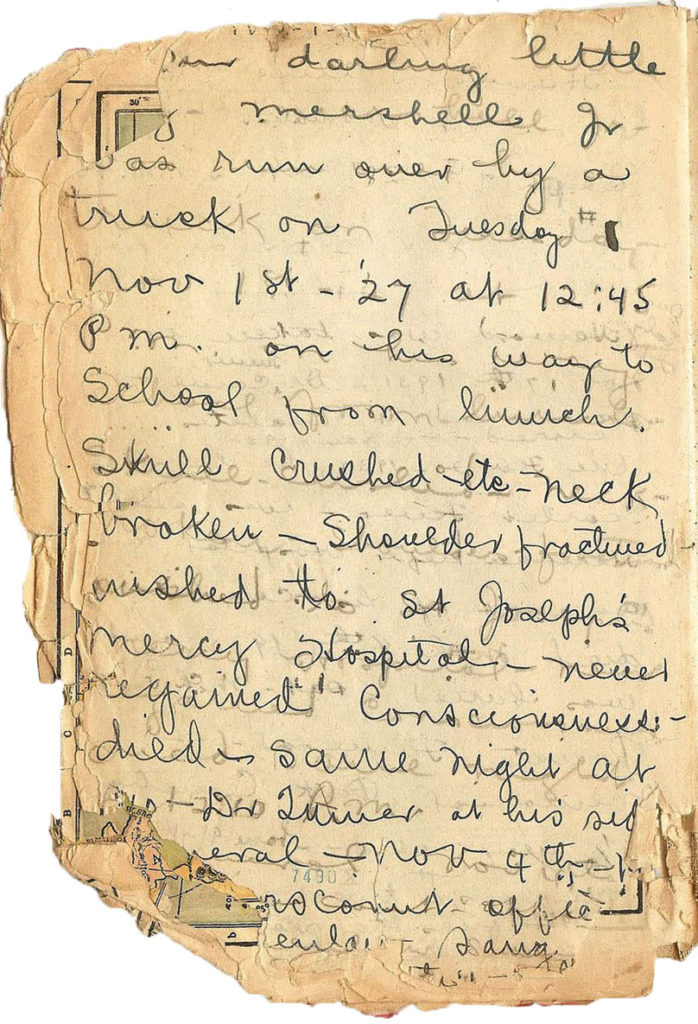 darling little
Mershell Jr
was run over by a
truck on Tuesday
Nov 1st - '27 at 12:45
P M. on his way to
School from lunch.
Skull Crushed - etc - neck
broken - Shoulder fractured -
rushed to St Joseph's
Mercy Hospital - never
regained Consciousness -
died - same night at
- Dr Turner at his
- Nov 4th -
7490
sang